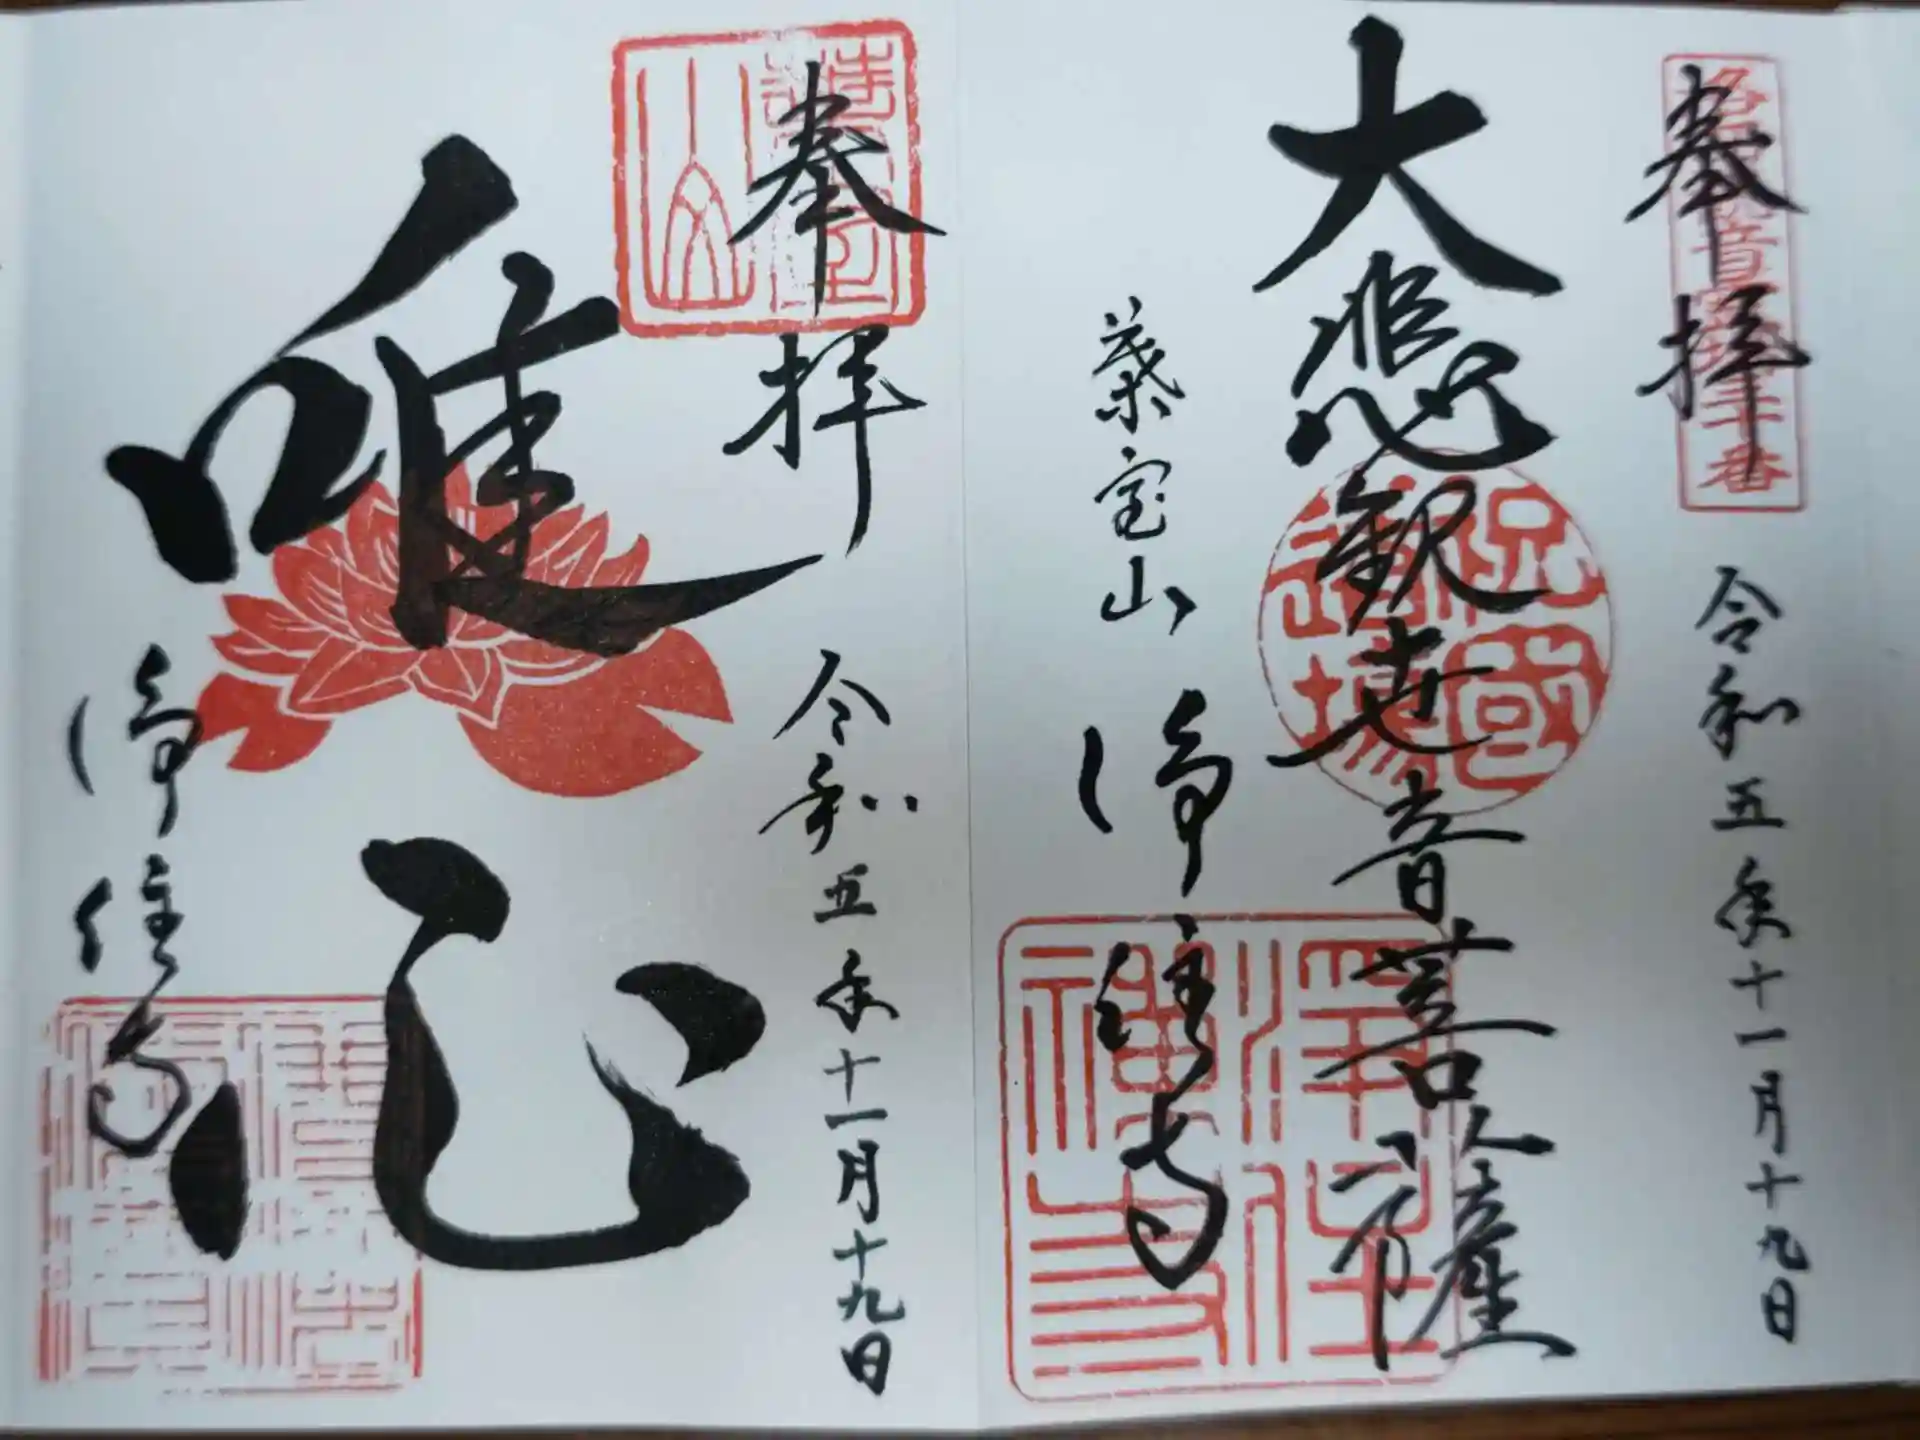 奉拝
令和五年十一月十九日
大悲観世音菩薩
葉室山
浄住寺
祝國
道場
浄住
禅寺
奉拝
令和五年十一月十九日
唯心
浄住寺